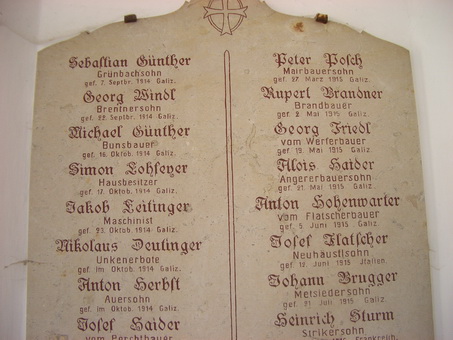 Sebastian Günther
Grünbachsohn
gef. 7. Septbr. 1914 Galiz.
Georg Windl
Brentnersohn
gef. 22. Septbr. 1914 Galiz.
Michael Günther
Bunsbauer
gef. 16. Oktob. 1914 Galiz.
Simon Lohfeyer
Hausbesitzer
gef. 17. Oktob. 1914 Galiz.
Jakob Leitinger
Maschinist
gef. 23. Oktob. 1914 Galiz.
Nikolaus Deutinger
Unkenerbote
gef. im Oktob. 1914 Galiz.
Anton Herbst
Auersohn
gef. im Oktob. 1914 Galiz.
Josef Haider
vom Perchtbauer
Peter Posch
Mairbauersohn
gef. 27. März 1915 Galiz.
Rupert Brandner
Brandbauer
gef. 2. Mai 1915 Galiz.
Georg Friedl
vom Werferbauer
gef. 19. Mai 1915 Galiz.
Alois Haider
Angererbauersohn
gef. 21. Mai 1915 Galiz.
Anton Hohenwarter
vom Flatscherbauer
gef. 5. Juni 1915 Galiz.
Josef Flatscher
Neuhäuslsohn
gef. 12. Juni 1915 Italien.
Johann Brugger
Metsiedersohn
gef. 31. Juli 1915 Galiz.
Heinrich Sturm
Strikersohn
1915 Frankreich.